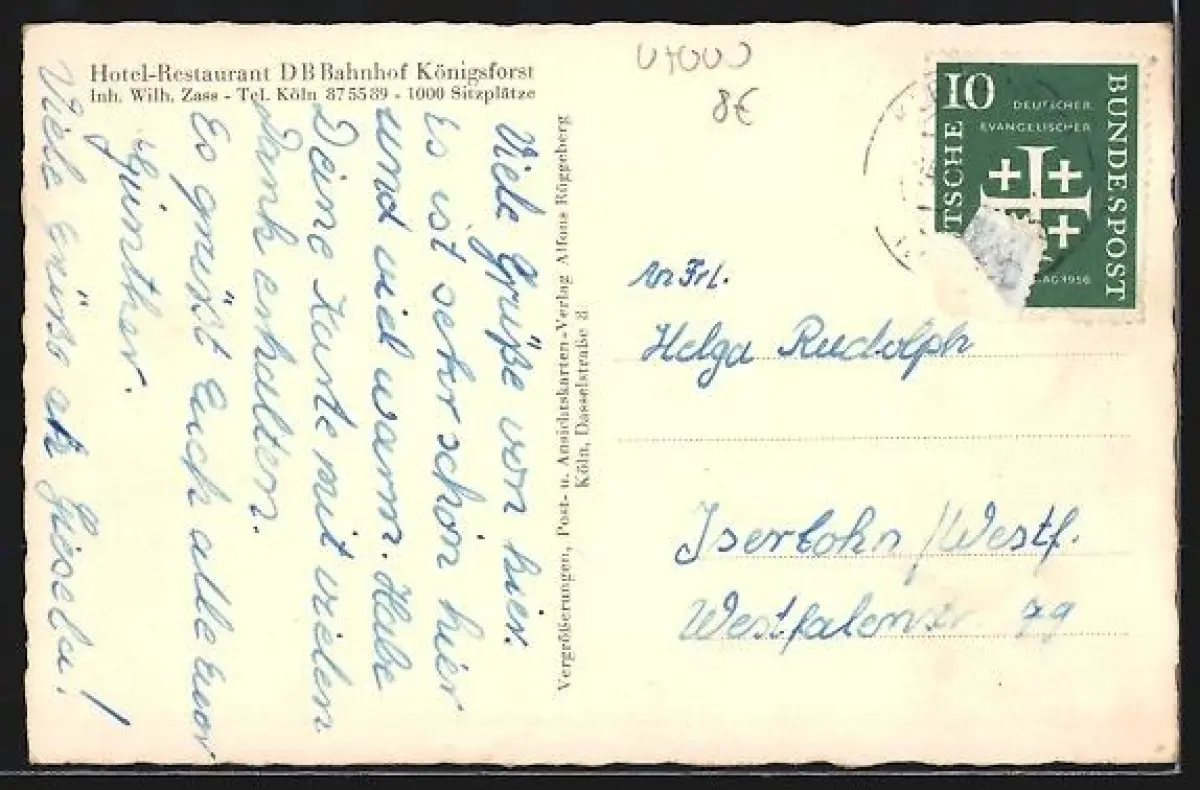 Hotel-Restaurant DB Bahnhof Königsforst
Inh. Wilh. Zass - Tel. Köln 875589 - 1000 Sitzplätze
Viele Grüße von hier.
Es ist sehr schön hier
und viel warm. Habe
Deine Karte mit vielen
Dank erhalten.
Es grüßt Euch alle Euer
Günther.
Viele Grüße an Gissela!
Vergrößerungen, Post- u. Ansichtskarten-Verlag Alfons Rüggeberg
Köln, Dasselstraße 8
8€
10
DEUTSCHER
EVANGELISCHER
TSCHE
BUNDESPOST
AG 1956
An Frl.
Helga Rudolph
Iserlohn/Westf.
Westfalenstr. 79